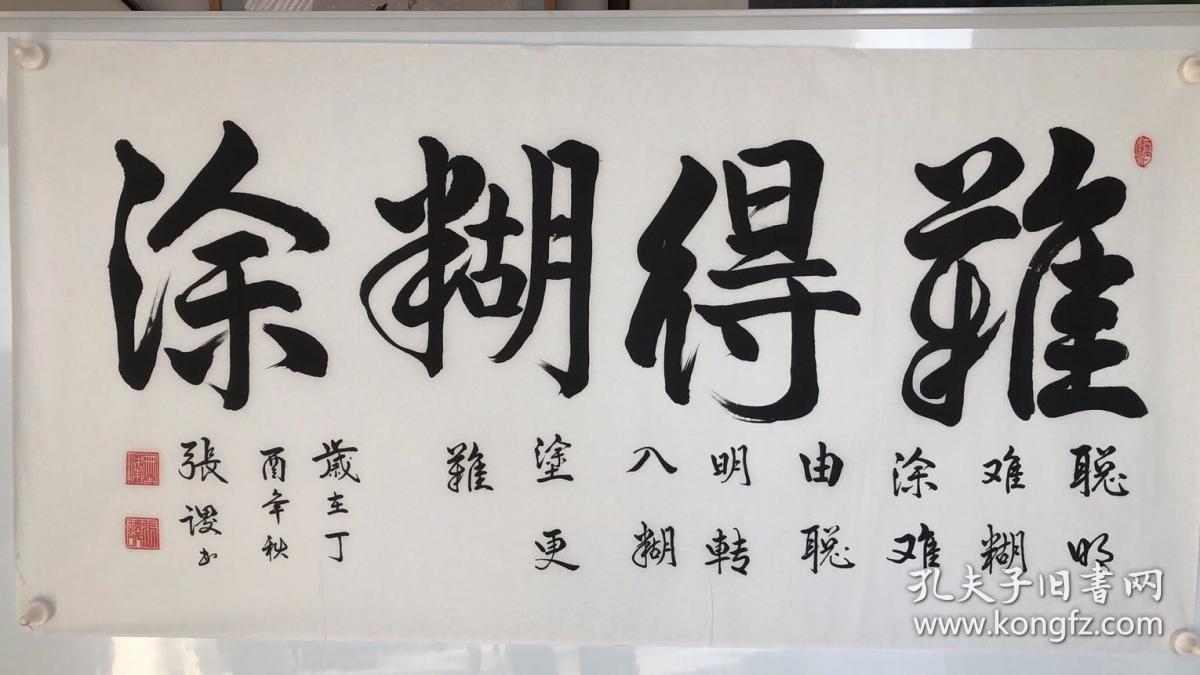 難得糊涂
聪明
难糊
涂难
由聪
明轉
入糊
塗更
難
歲在丁
酉年秋
張谡书
孔夫子旧书网
www.kongfz.com